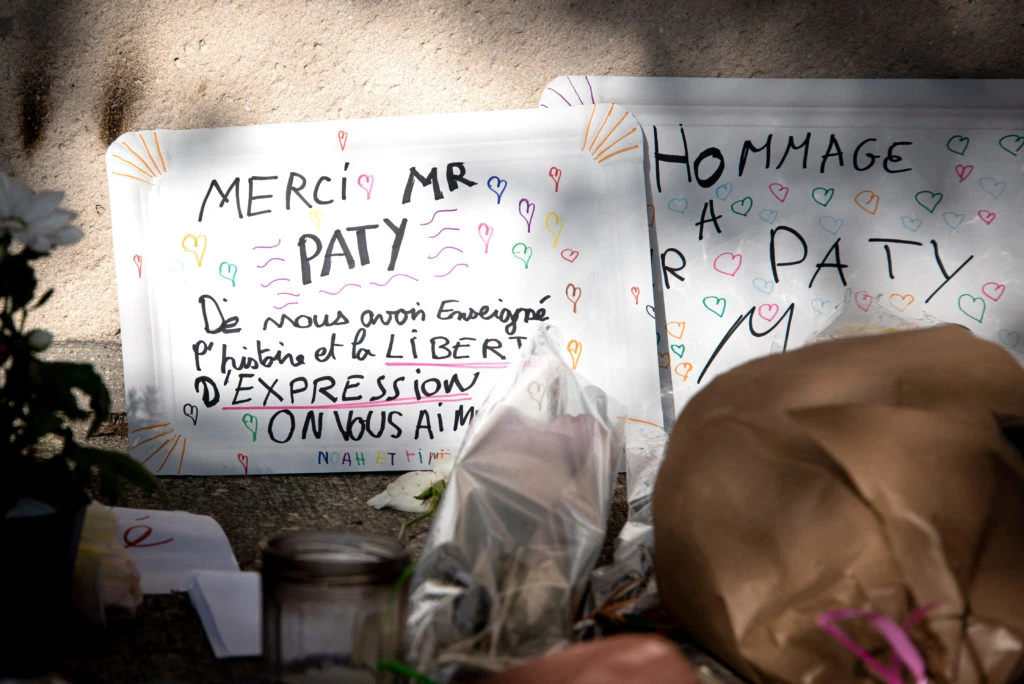 MERCi MR
PATY
De nous avoir Enseigné
l'histoire et la LIBERT
D'EXPRESSION
ON VOUS AIM
NOAH ET
HOMMAGE
A
R PATY
M
é